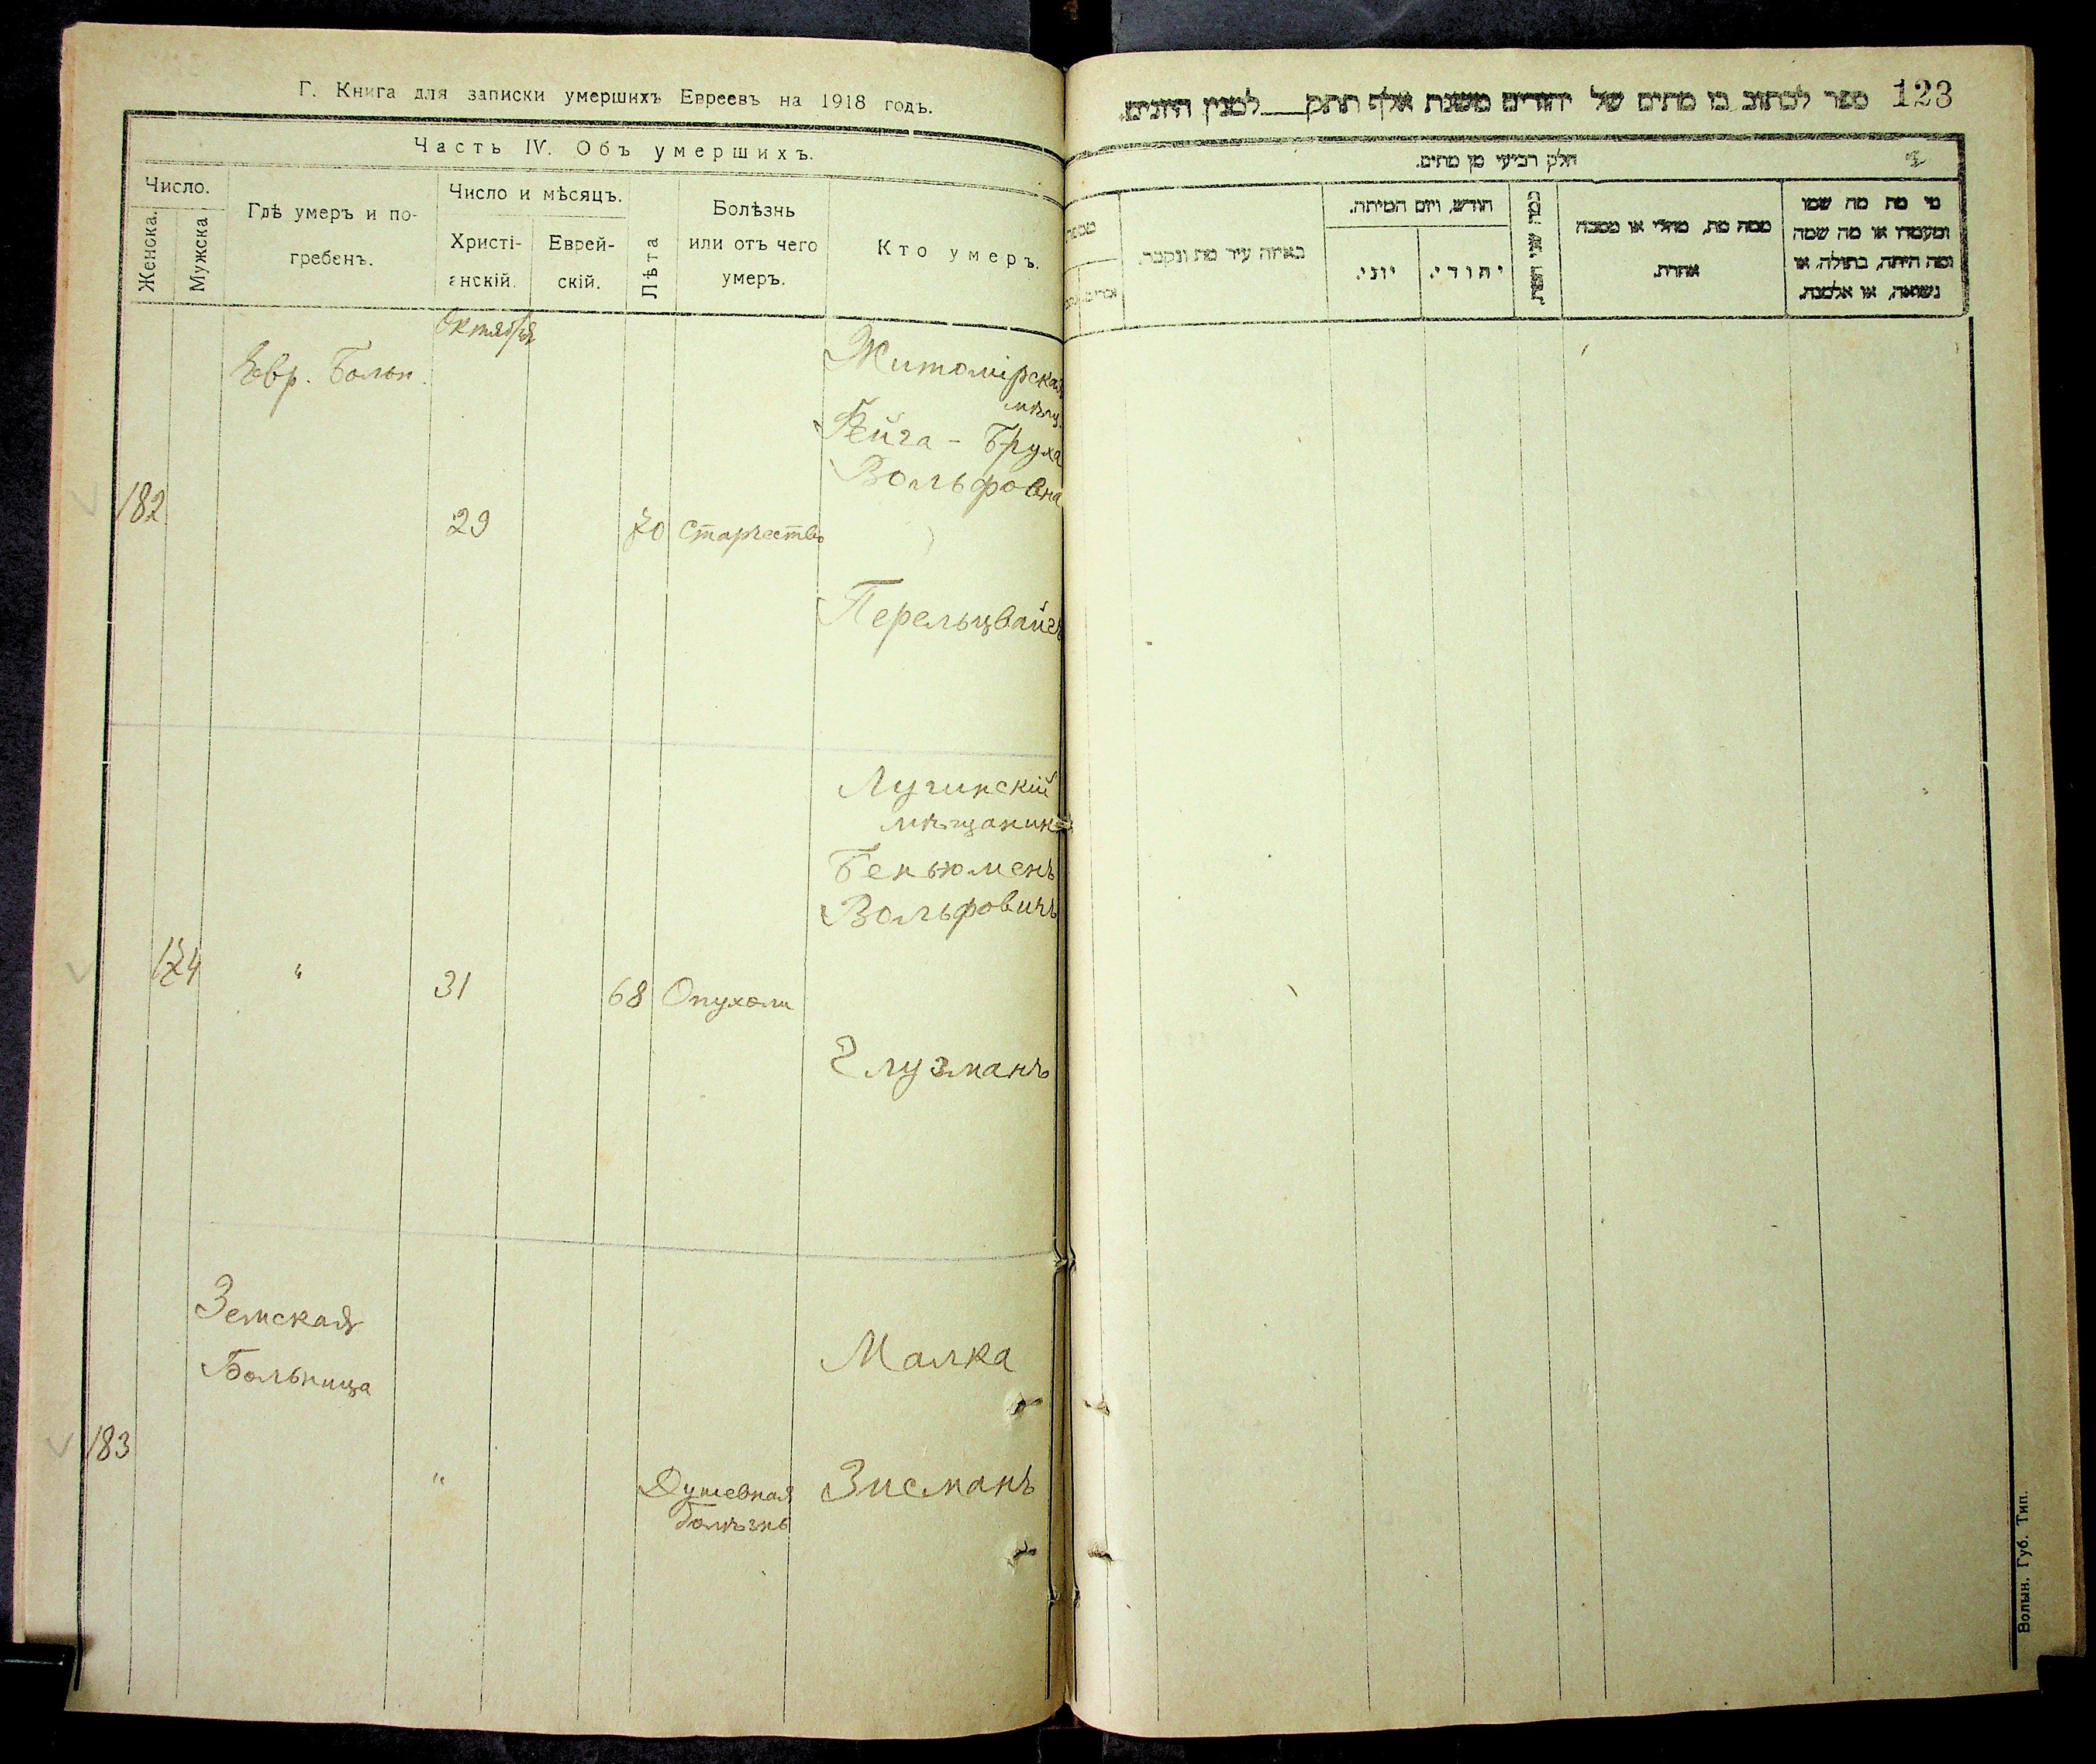 Г. Книга для записки умершихъ Евреевъ на 1918 годъ.
Часть IV. Объ умершихъ.
Число.
Женска.
Мужска
Гдѣ умеръ и по-
гребенъ.
Число и мѣсяцъ.
Христі-
анскій.
Еврей-
скій.
Лѣта
Болѣзнь
или отъ чего
умеръ.
Кто умеръ.
Октября
Евр. Больн.
182
29
70
Старчество
Житомірская
мѣщ.
Фейга - Бруха
Вольфовна
Перельцвайгъ
174
"
31
68
Опухоли
Лугинскій
мѣщанинъ
Беньюменъ
Вольфовичъ
Глузманъ
Земская
Больница
183
"
Душевная
болѣзнь
Малка
Зисманъ
123
ספר לכתוב בו מתים של יהודים משנת אלף תתק___למנין היונים.
חלק רביעי מן מתים.
מספר
באיזה עיר מת ונקבר.
חודש, ויום המיתה.
יהודי.
יוני.
ממה מת, מחלי או מסבה
אחרת.
מי מת מה שמו
ומעמדו או מה שמה
ומה היתה, בתולה, או
נשואה, או אלמנה.
Волын. Губ. Тип.